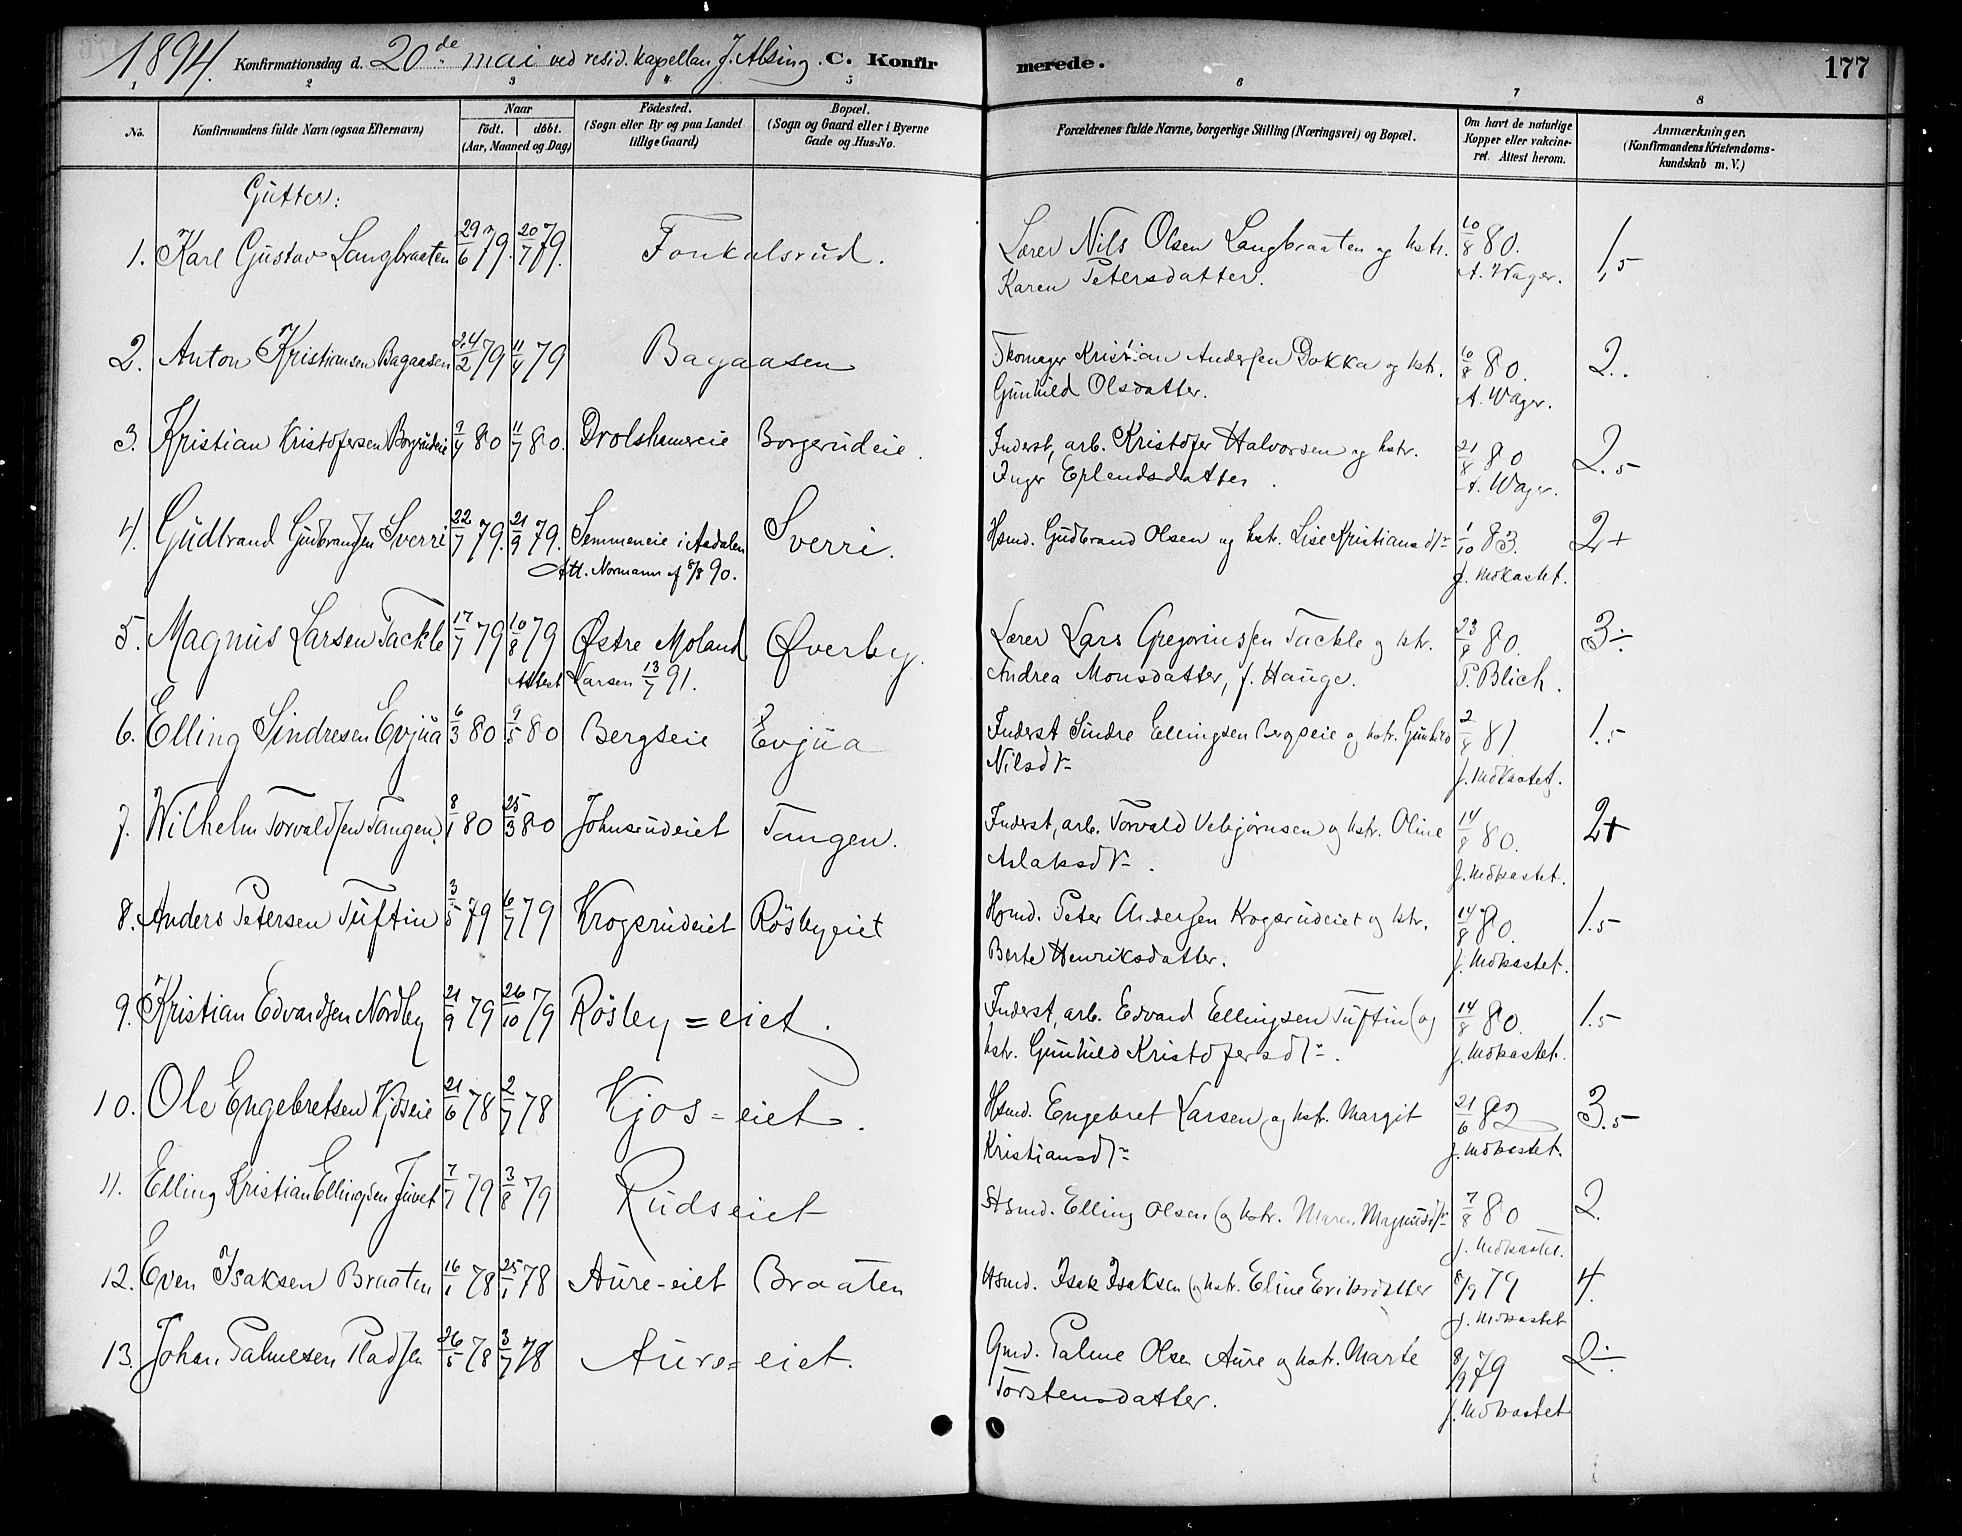 1894. Konfirmationsdag d. 20de mai ved resid. kapellan J. Alsing. C. Konfirmerede. 177
1 2 3 4 5 6 7 8
No. Konfirmandens fulde Navn (ogsaa Efternavn) Naar født. døbt. (Aar, Maaned og Dag) Fødested. (Sogn eller By og paa Landet tillige Gaard) Bopæl. (Sogn og Gaard eller i Byerne Gade og Hus-No. Forældrenes fulde Navne, borgerlige Stilling (Næringsvei) og Bopæl. Om havt de naturlige Kopper eller vakcineret. Attest herom. Anmærkninger. (Konfirmandens Kristendomskundskab m. V.)
Gutter:
1. Karl Gustav Langbraaten 29/6 79. 20/7 79. Fonkalsrud. Lærer Nils Olsen Langbraaten og hstr. 10/8 80. 1,5
Karen Petersdatter. A. Wager.
2. Anton Kristiansen Bagaasen 24/2 79 11/4 79 Bagaasen Skomager Kristian Andersen Dokka og hstr. 10/8 80. 2.
Gunhild Olsdatter. A. Wager.
3. Kristian Kristofersen Borgerudeie 9/4 80 11/7 80. Drolshamereie Borgerudeie. Inderst, arb. Kristofer Halvorsen og hstr. 21/8 80 2.5
Inger Erlendsdatter. A. Wager.
4. Gudbrand Gudbrandsen Sverri 22/7 79. 21/9 79. Semmeneie i Aadalen Sverri. Hsmd. Gudbrand Olsen og hstr. Lise Kristiansdtr 1/10 83. 2+
Att. Normann af 8/8 90. J. Mokastet.
5. Magnus Larsen Tackle 17/7 79 10/8 79 Østre Moland Øverby. Lærer Lars Gregoriussen Tackle og hstr. 23/9 80. 3÷
Attest Larsen 13/7 91. Andrea Monsdatter, f. Hauge. P. Blich.
6. Elling Sindresen Evjua 6/3 80 9/5 80 Bergseie Evjua Inderst Sindre Ellingsen Bergseie og hstr. Gunhild 81 1.5
Nilsdtr J. Mokastet.
7. Wilhelm Torvaldsen Tangen. 8/1 80 25/3 80 Johnsrudeiet Tangen. Inderst, arb. Torvald Vebjørnsen og hstr. Oline 14/8 80. 2+
Aslaksdtr. J. Mokastet.
8. Anders Petersen Tuftin 3/5 79 6/7 79 Krogsrudeiet Rösbyeiet Hsmd. Peter Andersen Krogsrudeiet og hstr. 14/8 80. 1.5
Berte Henriksdatter. J. Mokastet.
9. Kristian Edvardsen Nordby 21/9 79 26/10 79 Rösby=eiet. Inderst, arb. Edvard Ellingsen Tuftin og 14/8 80. 1.5
hstr. Gunhild Kristofersdtr. J. Mokastet.
10. Ole Engebretsen Kjoseie 21/6 78 2/7 78 Kjos-eiet. Hsmd. Engebret Larsen og hstr. Margit 21/6 82 3.5
Kristiansdtr J. Mokastet.
11. Elling Kristian Ellingsen Juvet 7/7 79 3/8 79 Rudseiet Hsmd. Elling Olsen og hstr. Maren Magnusdtr 7/8 80 2.
J. Mokastet.
12. Even Isaksen Braaten 16/1 78 25/1 78 Aure-eiet Braaten Hsmd. Isak Isaksen og hstr. Eline Eriksdatter 8/9 79 4.
J. Mokastet
13. Johan Palmesen Pladsen 26/5 78 3/7 78 Aure=eiet. Gmd. Palme Olsen Aure og hstr. Marte 8/9 79 2÷
Torstensdatter. J. Mokastet